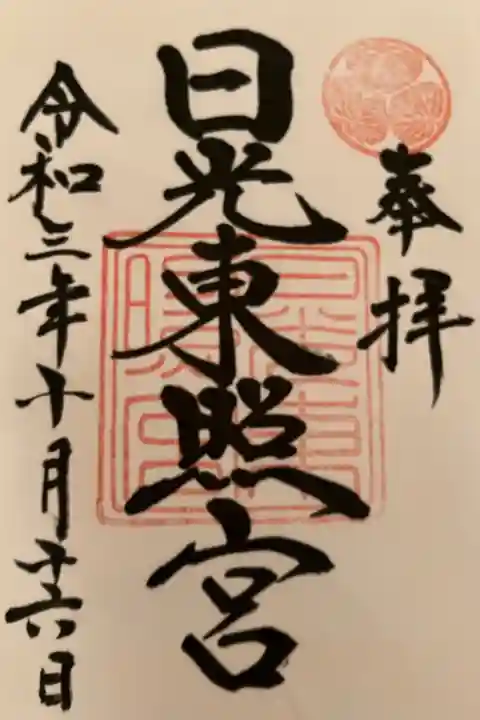 奉拝
日光東照宮
令和三年十月二十六日